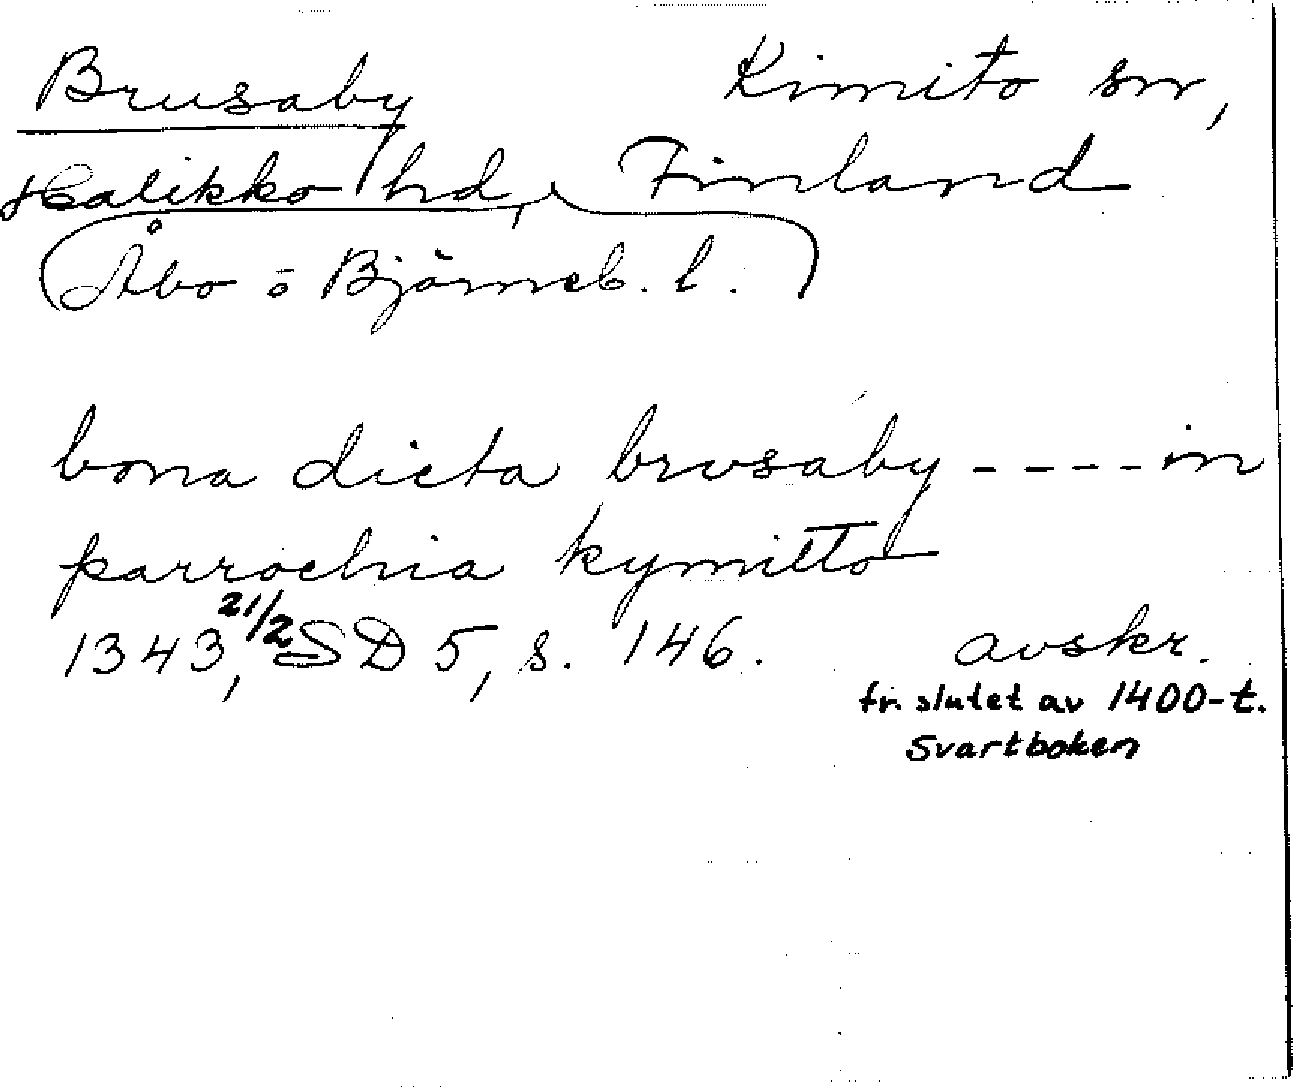 Brusaby Kimito sn,
Halikko hd, Finland
(Åbo o Björneb. l.)
bona dicta brvsaby ---- in
parrochia kymitto
1343, 21/2 SD 5, s. 146. avskr.
fr. slutet av 1400-t.
Svartboken